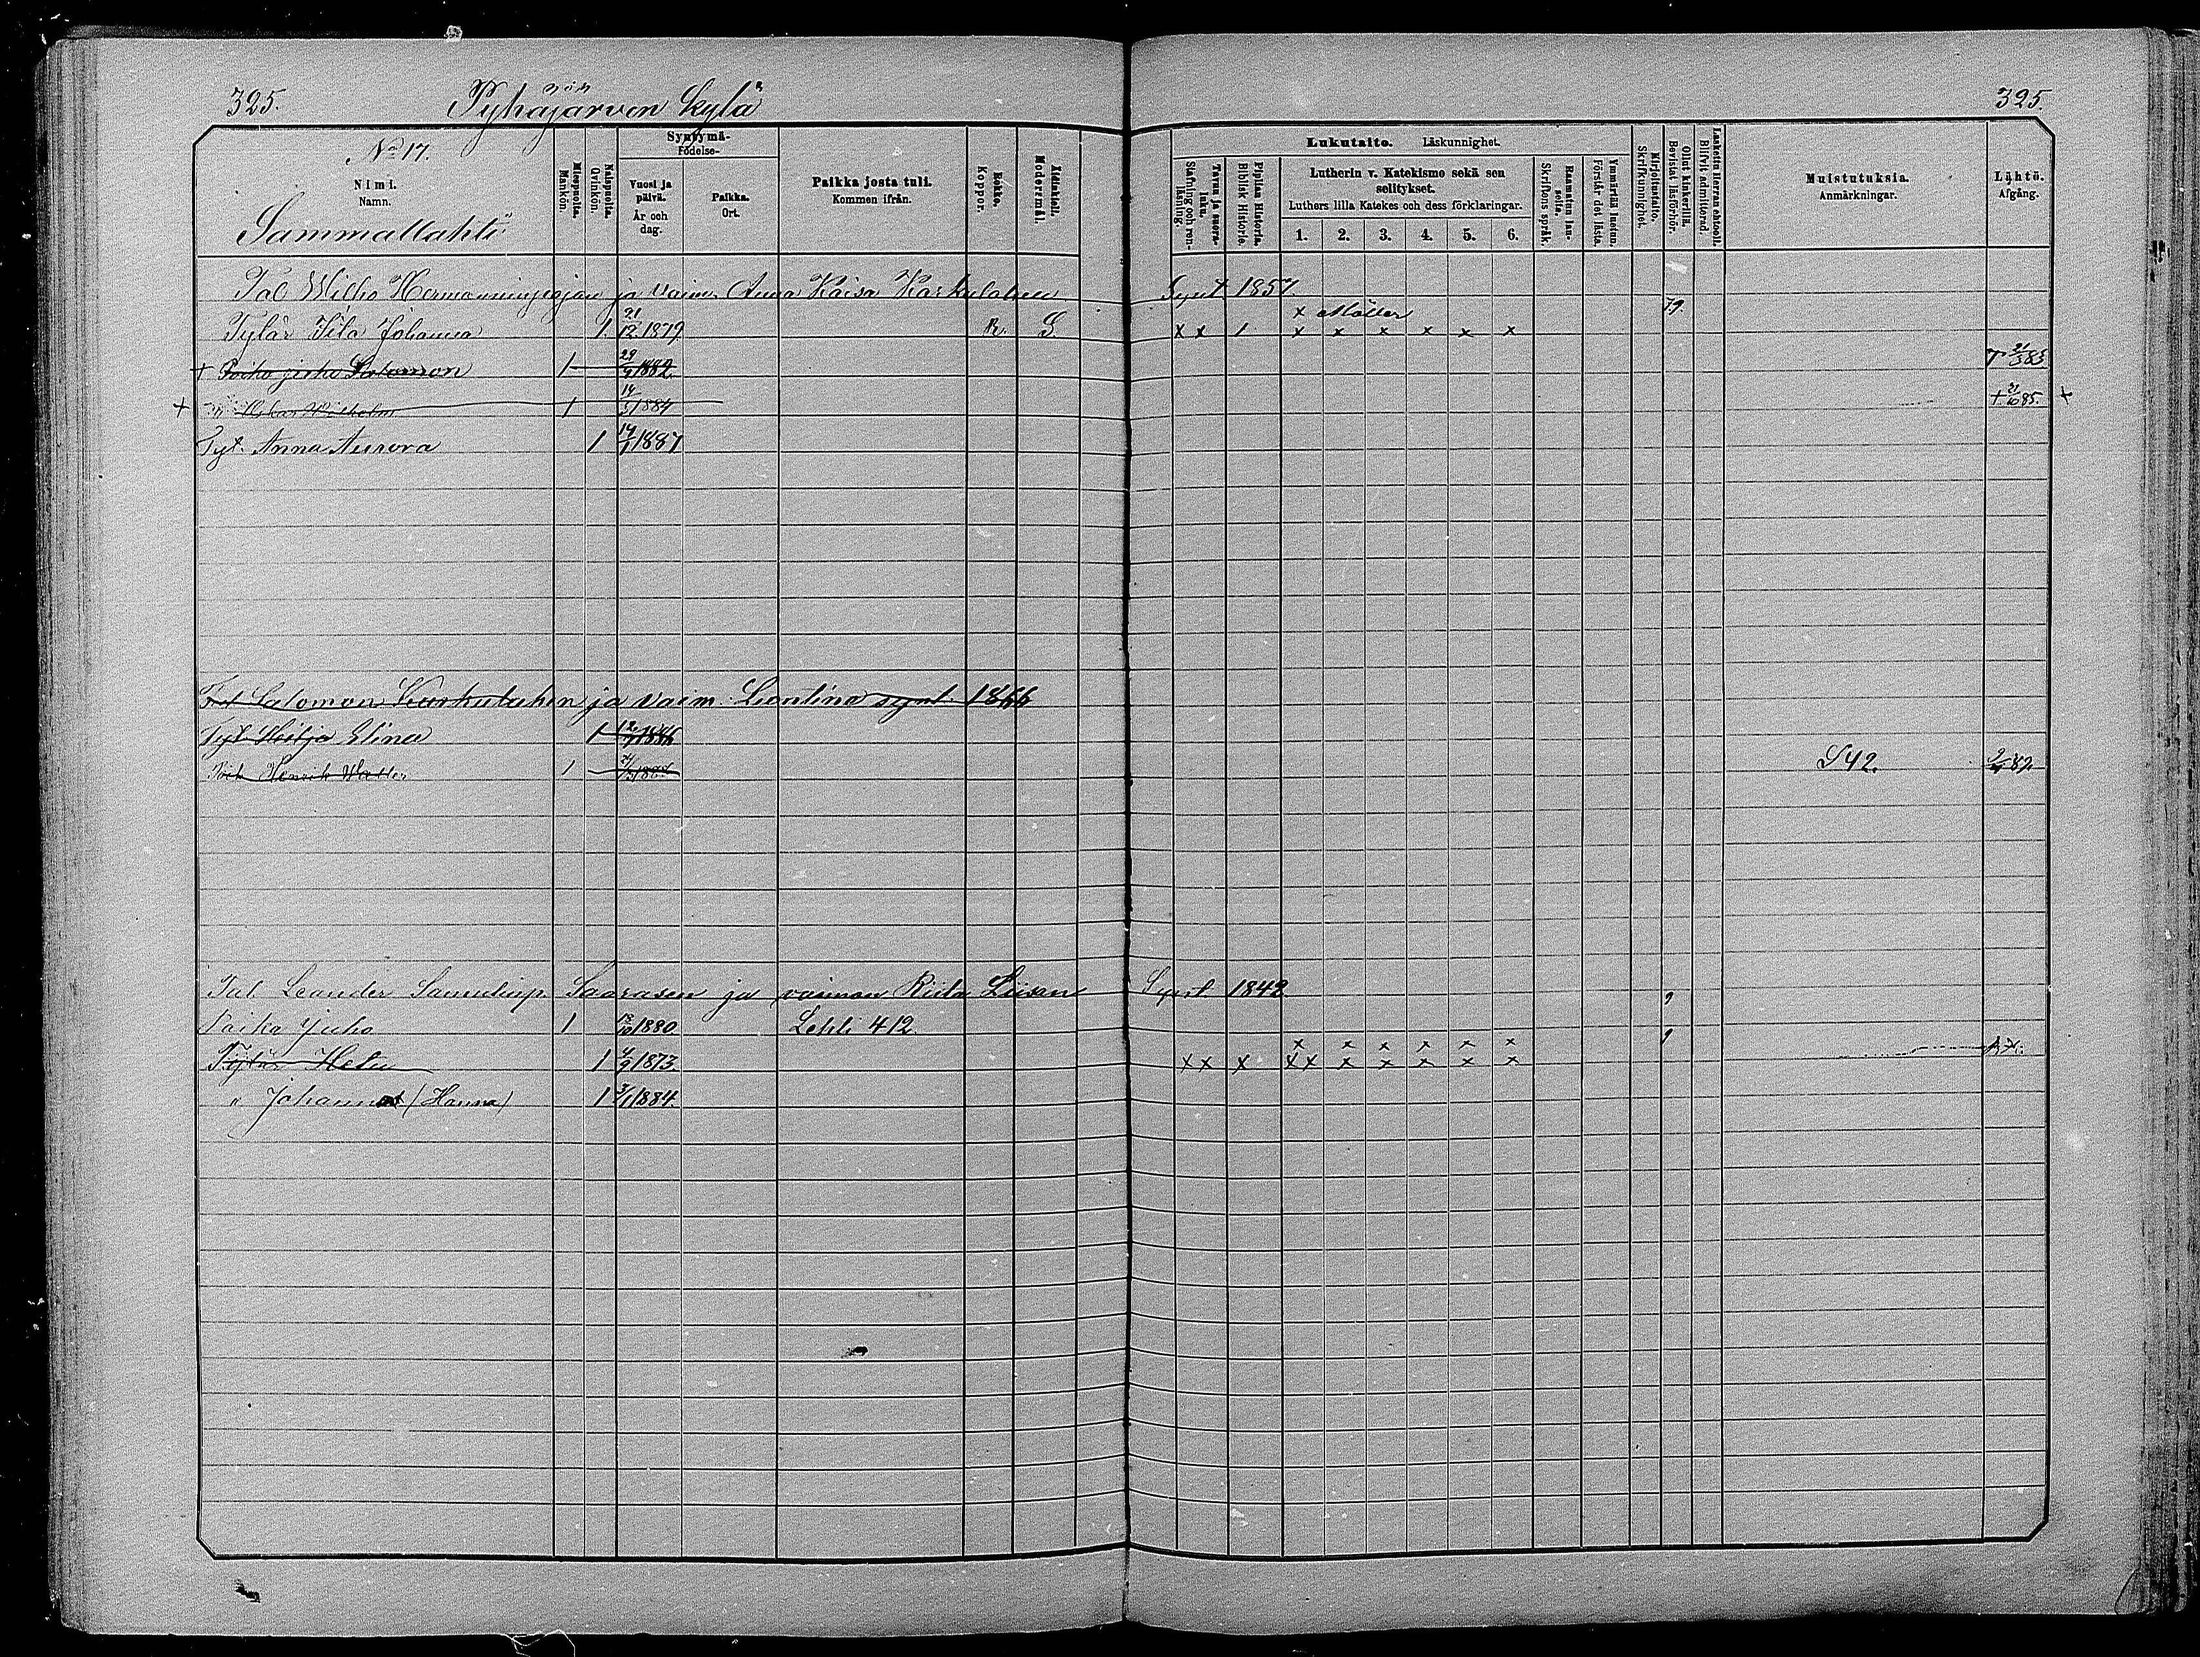 325. Pyhäjärven kylä 325.
No 17.
Nimi.
Namn.
Sammallahti
Miespuolta. Mankön.
Naispuolta. Qvinkön.
Syntymä-
Födelse-
Vuosi ja päivä.
År och dag.
Paikka.
Ort.
Paikka josta tuli.
Kommen ifrån.
Rokko. Koppor.
Äidinkieli. Modersmål.
Lukutaito. Läskunnighet.
Tavuu ja suora- luku.
Stafning och ren- läsning.
Piplian Historia.
Biblisk Historie.
Lutherin v. Katekismo sekä sen selitykset.
Luthers lilla Katekes och dess förklaringar.
1. 2. 3. 4. 5. 6.
Raamatun lau- seita.
Skriftens språk.
Ymmärtää luetun.
Förstår det lästa.
Kirjoitustaito.
Skrifkunnighet.
Ollut kinkerillä.
Bevistat läsförhör.
Laskettu Herran ehtooll.
Blifvit admitterad.
Muistutuksia.
Anmärkningar.
Lähtö.
Afgång.
Tal Wilho Hermanninpojan ja vaim. Anna Kaisa Karhulahen Synt 1857.
x 79.
Tytär Iita Johanna 1 21/12 1879 R. S. x x 1 x x x x x x
+ Poika Juho Salomon 1 29/9 1882 + 21/3 85
+ " Oskar Wilhelm 1 14/5 1884 + 21/10 85. +
Tyt. Anna Aurora 1 14/1 1887
Tal Salomon Karhulahen ja vaim. Leontina synt. 1866
Tyt. Hilja Elina 1 12/7 1886
Poik Henrik 1 S 42. 9/4 89.
Tal. Leander Samulinp. Saarasen ja vaimon Riita Liisan Synt. 1842 9
Poika Juho 1 18/10 1880 Lehti 412 9
x x x x x x
Tytär Heta 1 4/9 1873. x x x x x x x x x x
" Johanna (Hanna) 1 3/1 1884.